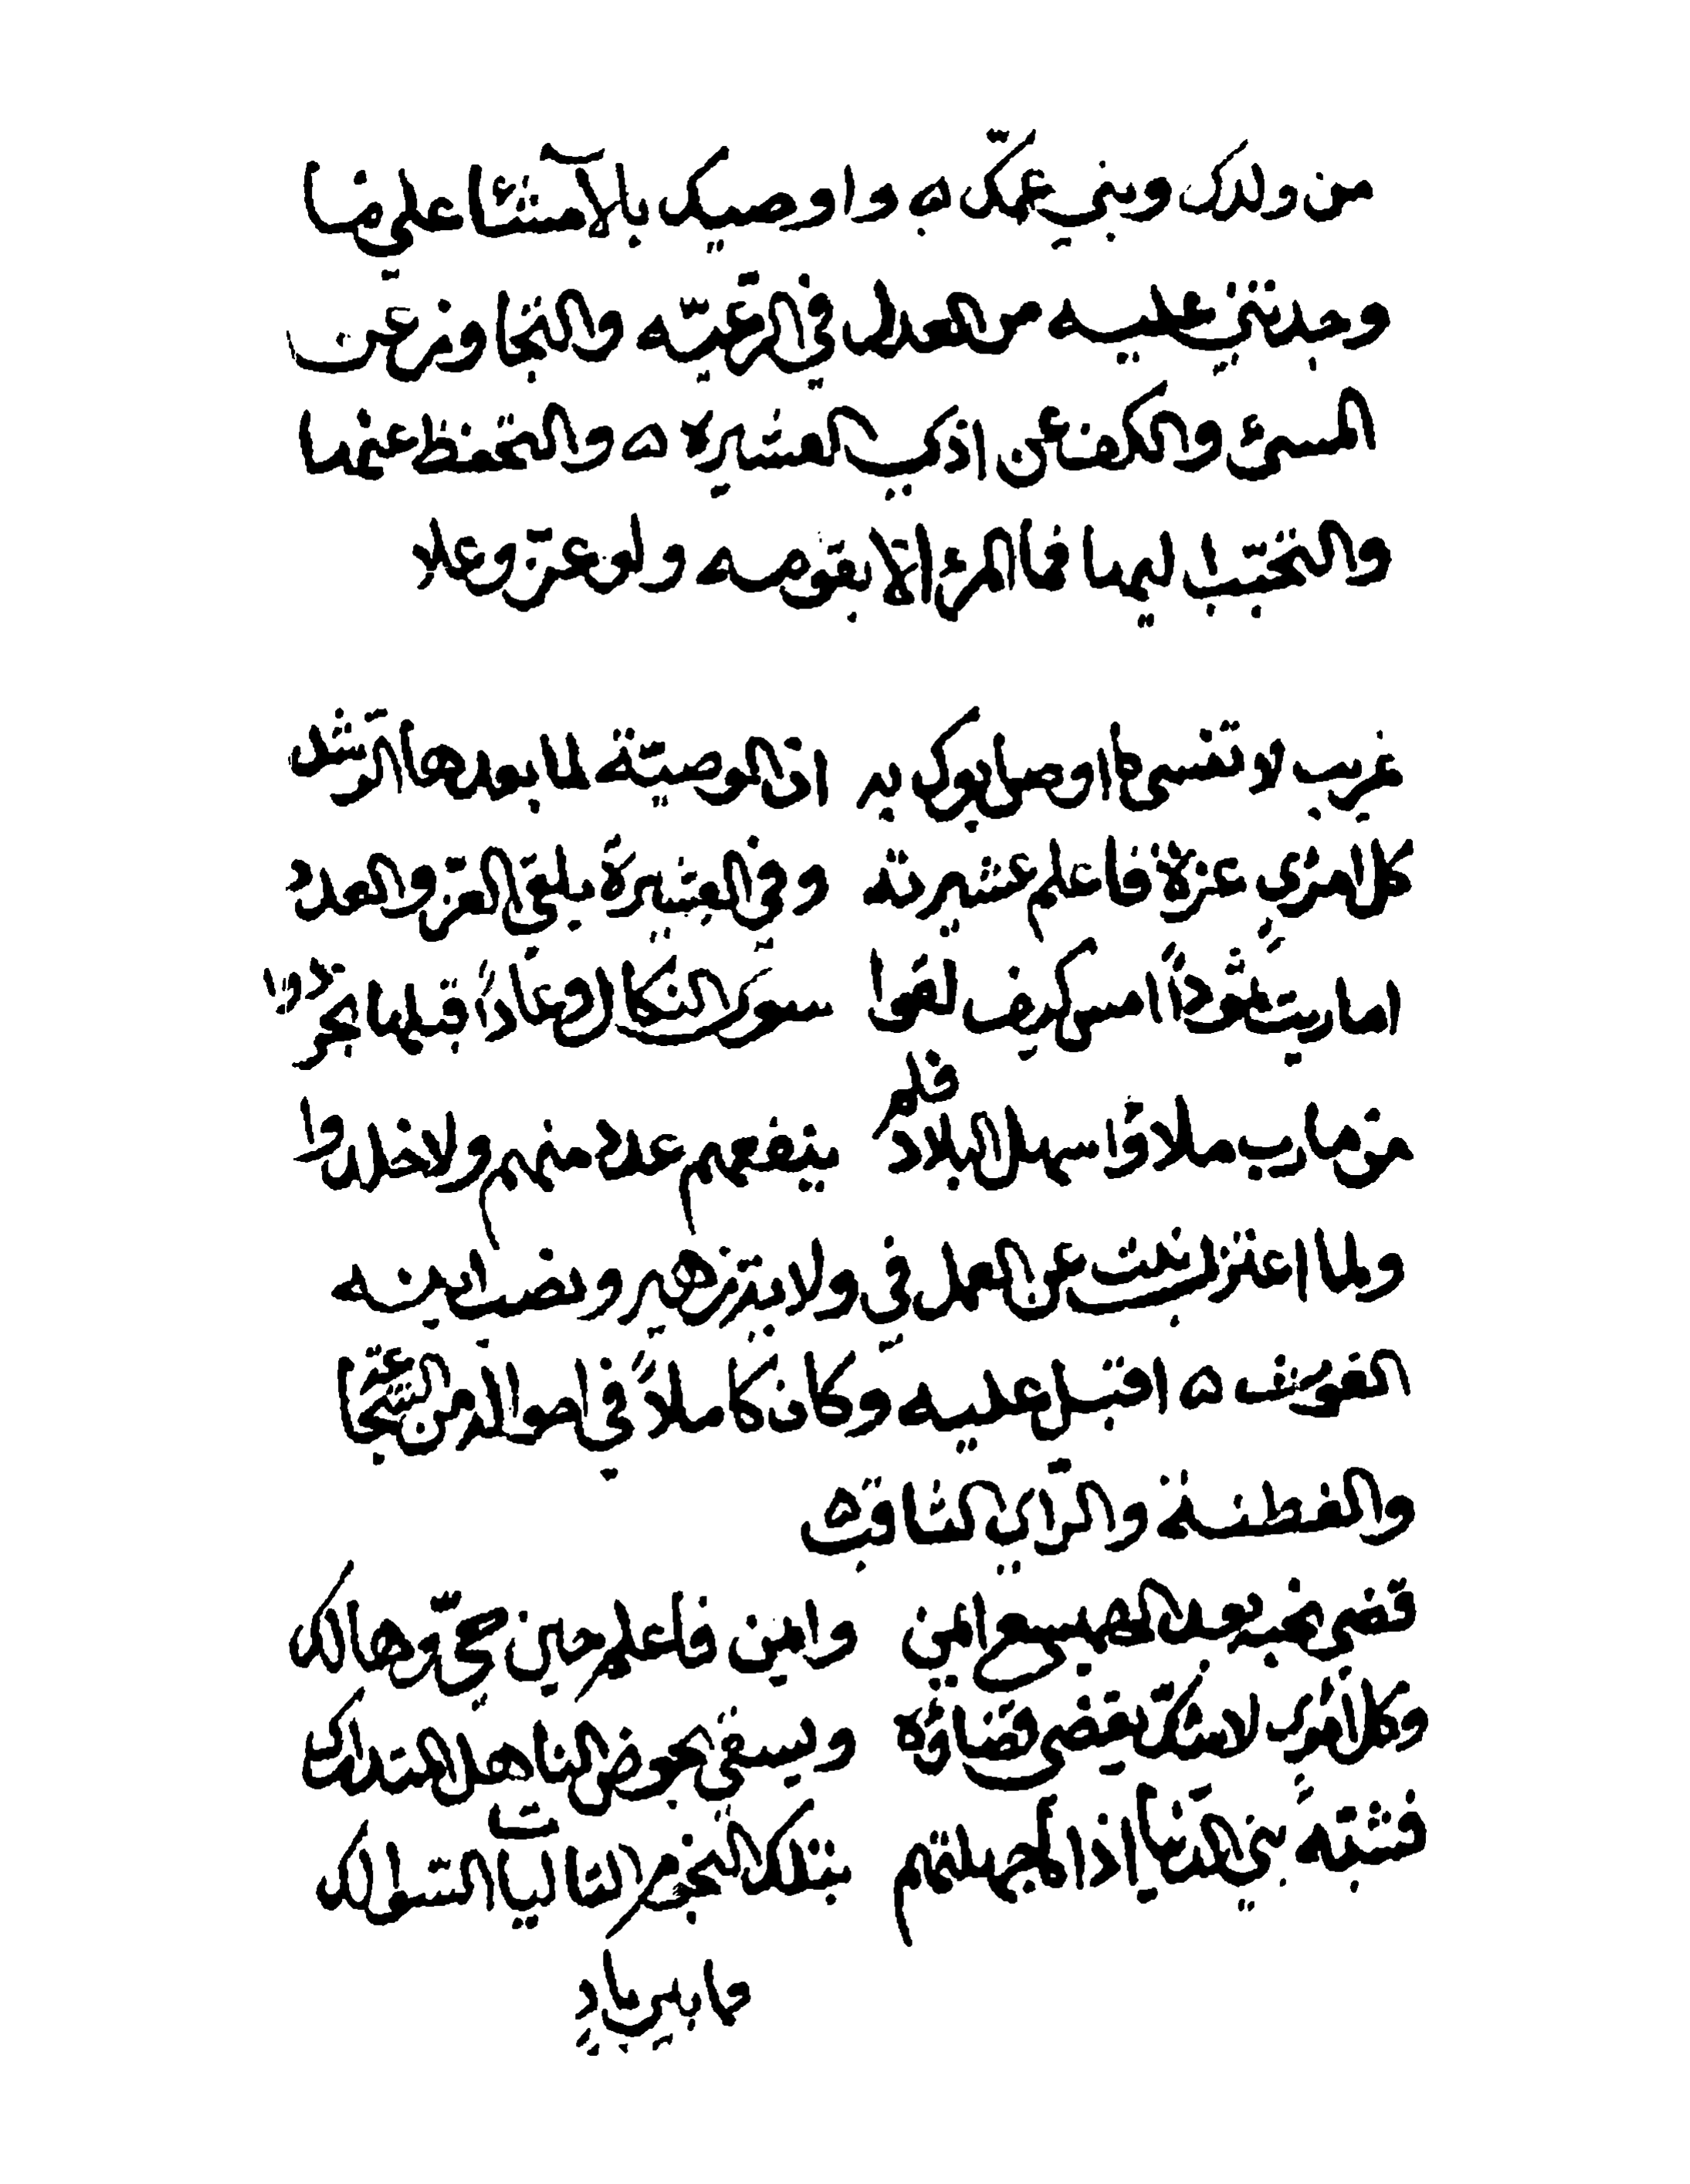 من ولدك وبني عمّك ه واوصيك بالآمتثا على ما
وجدتني عليه من العدل في الرّعيّه والتجاوز عن
المسئ والكف عن اذي العشيره ه والتحفظ عنها
والتحبّب اليها فما المرء الّا بقومه ولو عزّ وعلا
غريب لا تنسى ما اوصى ابوك به انّ الوصيّة لما بعدها الرّشد
كل امرئ عزة فاعلم عشيرته وفي العشيرة يلقى العزّ والعدد
اما رايت ثموداً امس كيف لقوا سوّ النكال وعاداً قبلها
من مارب ملاؤا سهل البلاد فلم ينفعهم عدد منهم ولا خلدوا
ولما اعتزل نبت عن العمل في ولايته زهير ونصب ابنه
الغوث ه اقبل عليه وكان كاملاً في احواله من الشجا
والفطنة والرّاي الثاقب ه
قضى نحبه بعد الهميسع ايمن وايمن فاعلم حين عمّ وهالك
وكل امرئ لا شكّ يقضى قضاؤه ويسقى بحوض المناهل
فشبّه بني الدّنيا اذا ما جهلتهم بتلك النجوم التاليات السّوالك